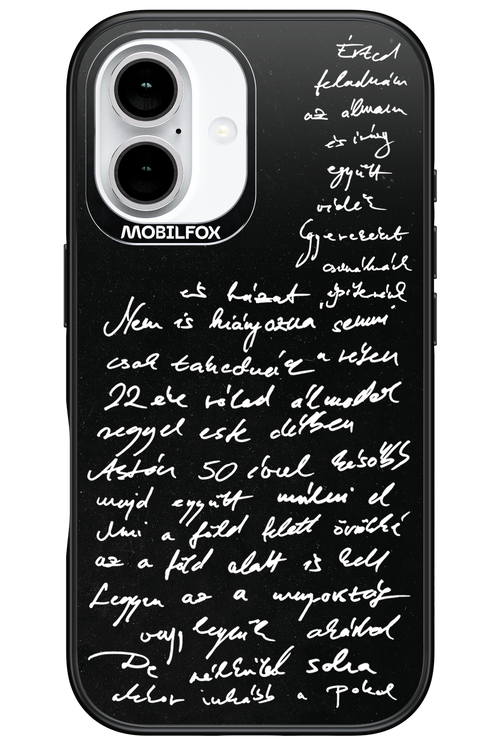 MOBILFOX
Érted
feladnám
az álmam
és így
együtt
vidék
Gyereket
csinálnánk
és házat építenék
Nem is hiányozna semmi
csak takednéz a részen
22 éve rólad álmodok
reggel este délben
Aztán 50 évvel később
majd együtt múlni el
Ami a föld felett örökké
az a föld alatt is kell
Legyen az a mennyország
vagy legyünk akárhol
De nélküled soha
akkor inkább a Pokol